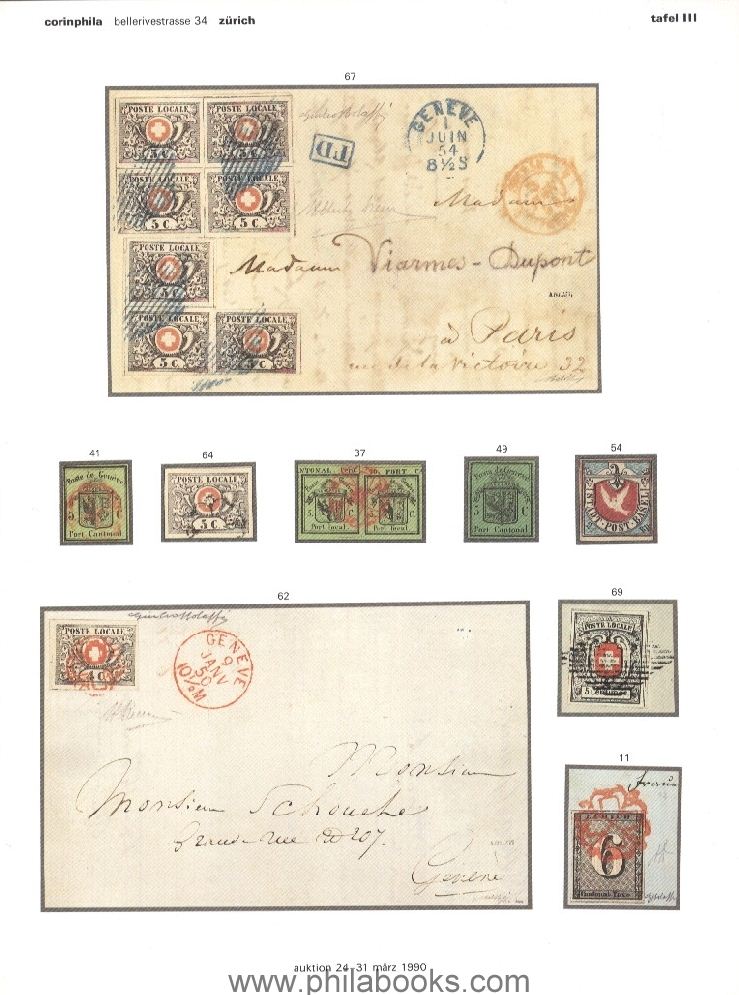 corinphila bellerivestrasse 34 zürich
tafel III
67
POSTE LOCALE
5 C
POSTE LOCALE
5 C
5 C
5 C
POSTE LOCALE
POSTE LOCALE
5 C
POSTE LOCALE
5 C
PD
GENEVE
1
JUIN
54
8½S
Madame
Madame Viarmes - Dupont
à Paris
rue de la Victoire 32
41
64
37
49
54
Poste de Genève
5 C
Port Cantonal
POSTE LOCALE
5 C
PORT C
5 C
Port Local
Port Local
Poste de Genève
5 C
Port Cantonal
STADT-POST-BASEL
62
69
POSTE LOCALE
GENEVE
9
JANV
50
10½M
Monsieur
Monsieur
Grande rue
Genève
POSTE LOCALE
11
6
Cantonal-Taxe
auktion 24-31 märz 1990
www.philabooks.com